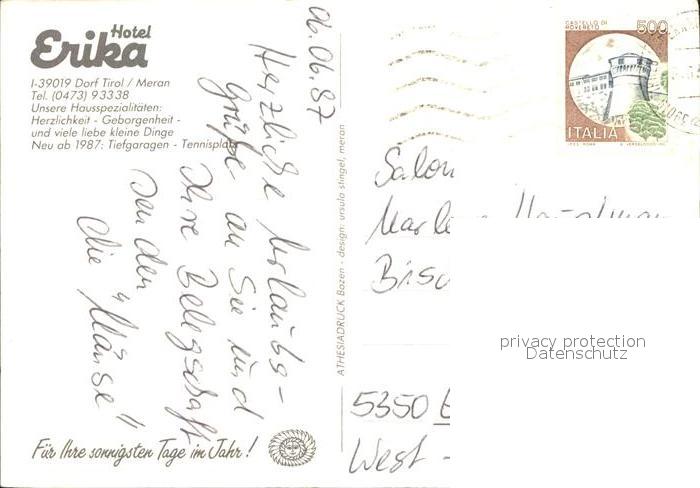 Hotel
Erika
I-39019 Dorf Tirol / Meran
Tel. (0473) 93338
Unsere Hausspezialitäten:
Herzlichkeit - Geborgenheit -
und viele liebe kleine Dinge
Neu ab 1987: Tiefgaragen - Tennisplatz
06.06.87
Herzliche Urlaubs-
grüße an Sie und
Ihre Belegschaft
senden
die "Mäuse"
Für Ihre sonnigsten Tage im Jahr!
ATHESIADRUCK Bozen - design: ursula stingel, meran
CASTELLO DI
ROVERETO
500
ITALIA
Salon
5350
West -
privacy protection
Datenschutz